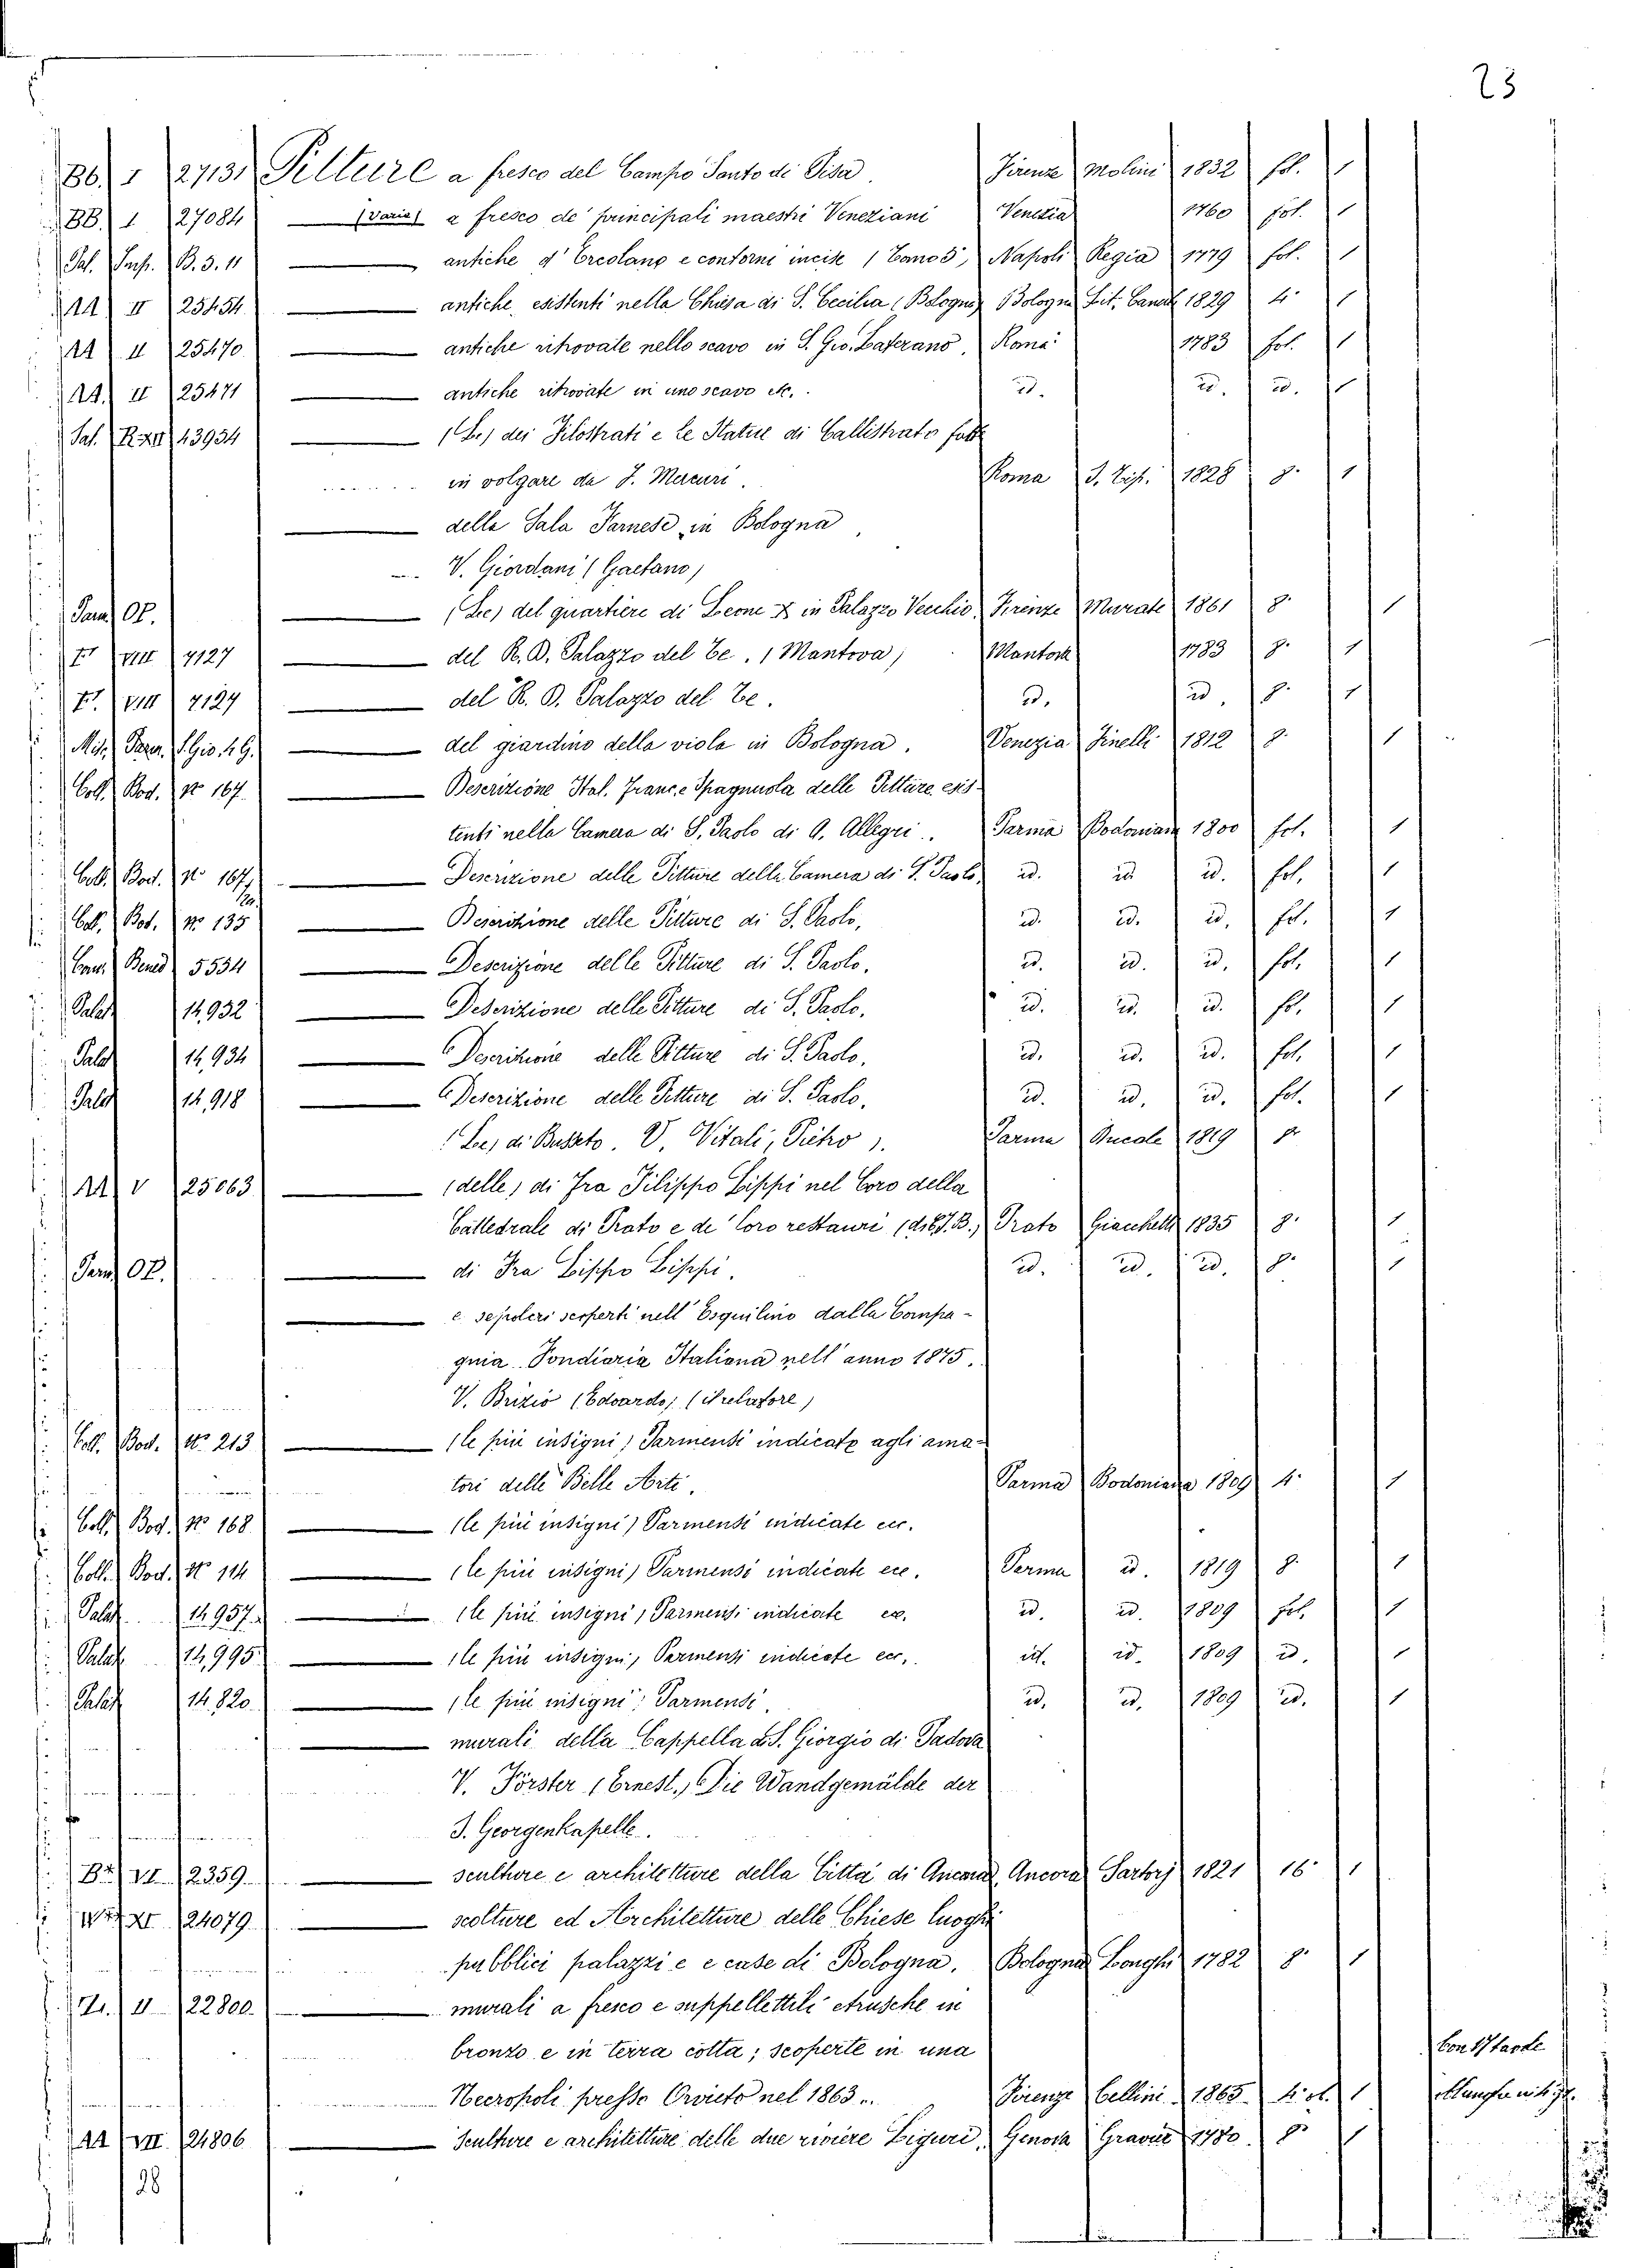 23
BB. I 27131 Pitture a fresco del Campo Santo di Pisa. Firenze Molini 1832 fol. 1
BB. I 27084 (varie) a fresco de' principali maestri Veneziani Venezia 1760 fol. 1
Sal. B. 3. 11 antiche d' Ercolano e contorni incise (Tomo 5) Napoli Regia 1779 fol. 1
AA II 25454 antiche esistenti nella Chiesa di S. Cecilia (Bologna) Bologna Lit. 1829 4° 1
AA II 25470 antiche ritrovate nello scavo in S. Gio. Laterano. Roma 1783 fol. 1
AA. II 25471 antiche ritrovate in uno scavo etc. id. id. id. 1
Sal. R. XII 43934 (Le) dei Filostrati e le Statue di Callistrato fatte
in volgare da F. Mercuri. Roma 1828 8° 1
della Sala Farnese in Bologna
V. Giordani (Gaetano)
OP. (Le) del quartiere di Leone X in Palazzo Vecchio. Firenze Murate 1861 8° 1
VIII 7127 del R. D. Palazzo del Te. (Mantova) Mantova 1783 8° 1
VIII 7127 del R. D. Palazzo del Te. id. id. 8° 1
del giardino della viola in Bologna. Venezia Zinelli 1812 8° 1
Coll. Bod. N° 167 Descrizione Ital. Franc. e Spagnuola delle Pitture esis-
tenti nella Camera di S. Paolo di A. Allegri. Parma Bodoniana 1800 fol. 1
Coll. Bod. N° 167 Descrizione delle Pitture della Camera di S. Paolo. id. id. id. fol. 1
Coll. Bod. N° 135 Descrizione delle Pitture di S. Paolo. id. id. id. fol. 1
5534 Descrizione delle Pitture di S. Paolo. id. id. id. fol. 1
Palat 14,932 Descrizione delle Pitture di S. Paolo. id. id. id. fol. 1
Palat 14,934 Descrizione delle Pitture di S. Paolo. id. id. id. fol. 1
Palat 14,918 Descrizione delle Pitture di S. Paolo. id. id. id. fol. 1
(Le) di Busseto. V. Vitali, Pietro). Parma Ducale 1819 8°
AA V 25063 (delle) di Fra Filippo Lippi nel Coro della
Cattedrale di Prato e de' loro restauri Prato 1835 8° 1
OP. di Fra Lippo Lippi. id. id. id. 8° 1
e sepolcri scoperti nell' Esquilino dalla Compa-
gnia Fondiaria Italiana nell' anno 1875.
V. Brizio (Edoardo) (il relatore)
Coll. Bod. N° 213 (le più insigni) Parmensi indicate agli ama-
tori delle Belle Arti. Parma Bodoniana 1809 4° 1
Coll. Bod. N° 168 (le più insigni) Parmensi indicate ecc.
Coll. Bod. N° 114 (le più insigni) Parmensi indicate ecc. Parma id. 1819 8° 1
Palat 14,957 (le più insigni) Parmensi indicate ec. id. id. 1809 fol. 1
Palat 14,995 (le più insigni) Parmensi indicate ecc. id. id. 1809 id. 1
Palat 14.820 (le più insigni) Parmensi. id. id. 1809 id. 1
murali della Cappella di S. Giorgio di Padova
V. Förster (Ernest.) Die Wandgemälde der
S. Georgenkapelle.
VI 2359 sculture e architetture della Città di Ancona. Ancona Sartorj 1821 16° 1
XI 24079 scolture ed Architetture delle Chiese luoghi
pubblici palazzi e e case di Bologna. Bologna Longhi 1782 8° 1
II 22800 murali a fresco e suppellettili etrusche in
bronzo e in terra cotta; scoperte in una
Necropoli presso Orvieto nel 1863. Firenze Cellini 1865 4° 1
AA VII 24806 Sculture e architetture delle due riviere Liguri. Genova 1780 8° 1
28